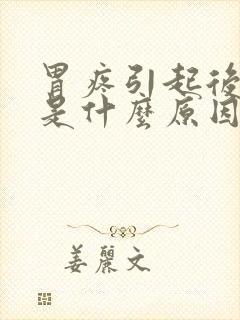 胃疼引起後
是什麼原因
姜麗文